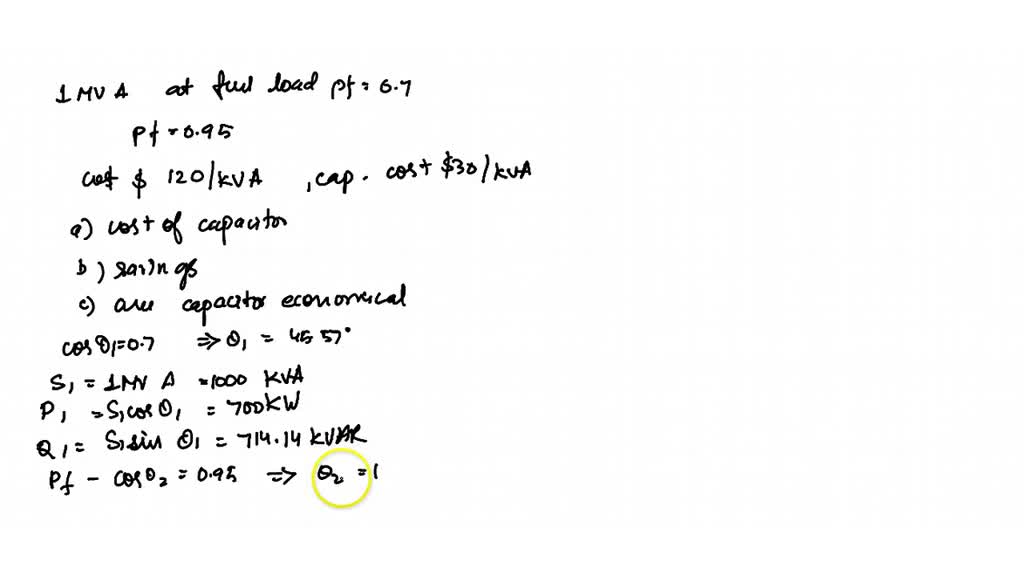 1 MV A at full load pf = 0.7
Pf = 0.95
cost $ 120/KVA , cap. cost $30/KVA
a) cost of capacitor
b) savings
c) are capacitor economical
cosθ₁=0.7 ⇒ θ₁ = 45 57°
S₁ = 1MV A = 1000 KVA
P₁ = S₁cosθ₁ = 700KW
Q₁ = S₁sin θ₁ = 714.14 KVAR
Pf - cosθ₂ = 0.95 ⇒ θ₂ = 1